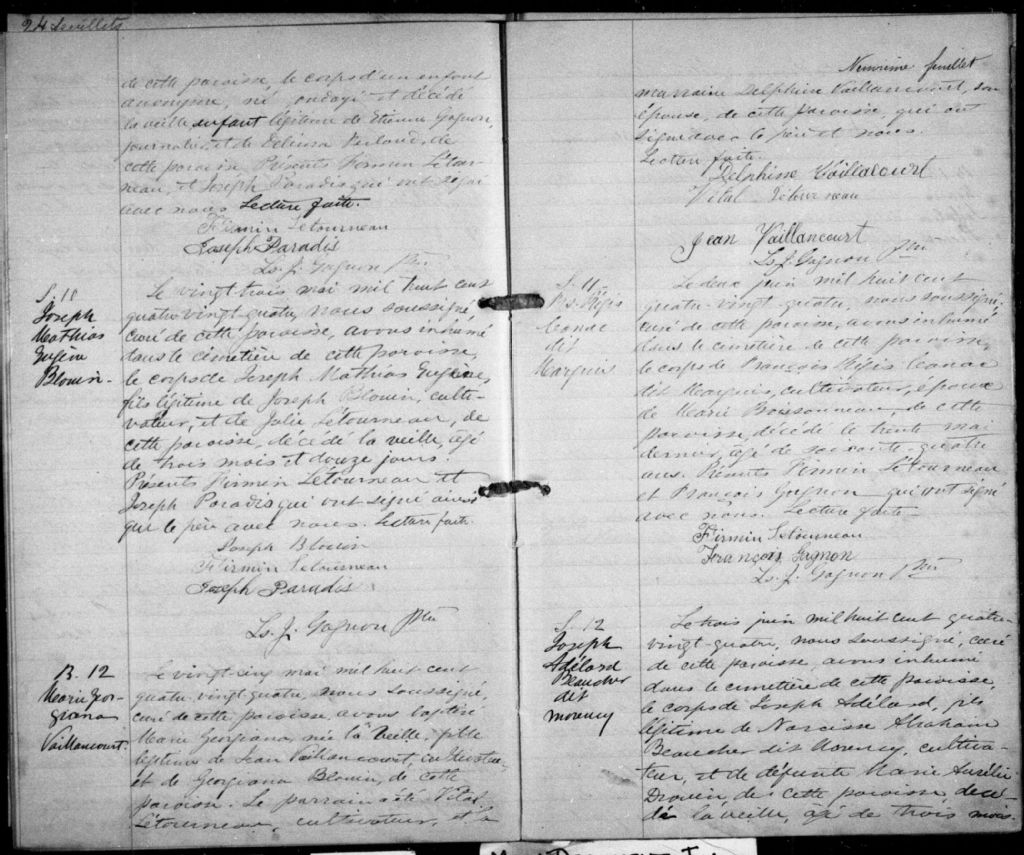 24 feuillets
de cette paroisse, le corps d'un enfant
anonyme, né, ondoyé et décédé
la veille enfant légitime de Etienne Gagnon,
journalier et de Delima Verland, de
cette paroisse. Présents Firmin Létour-
neau, et Joseph Paradis qui ont signé
avec nous. Lecture faite.
Firmin Letourneau
Joseph Paradis
Ls. J. Gagnon Ptre
S. 10
Joseph
Mathias
Eugène
Blouin.
Le vingt-trois mai mil huit cent
quatre-vingt-quatre, nous soussigné,
curé de cette paroisse, avons inhumé
dans le cimetière de cette paroisse,
le corps de Joseph Mathias Eugène,
fils légitime de Joseph Blouin, culti-
vateur, et de Julie Létourneau, de
cette paroisse, décédé la veille, agé
de trois mois et douze jours.
Présents Firmin Létourneau et
Joseph Paradis qui ont signé ainsi
que le père avec nous. Lecture faite.
Joseph Blouin
Firmin Letourneau
Joseph Paradis
Ls. J. Gagnon Ptre
B. 12
Marie Geor-
giana
Vaillancourt.
Le vingt-six mai mil huit cent
quatre-vingt-quatre, nous soussigné,
curé de cette paroisse, avons baptisé
Marie Georgiana, née la veille, fille
légitime de Jean Vaillancourt, cultivateur,
et de Georgiana Blouin, de cette
paroisse. Le parrain a été Vital
Létourneau, cultivateur, et la
Neuvième feuillet
marraine Delphine Vaillancourt, son
épouse, de cette paroisse, qui ont
signé avec le père et nous.
Lecture faite.
Delphine Vaillacourt
Vital Létourneau
Jean Vaillancourt
Ls. J. Gagnon Ptre
S. 11
Frs. Régis
Canac
dit
Marquis
Le deux juin mil huit cent
quatre-vingt-quatre, nous soussigné,
curé de cette paroisse, avons inhumé
dans le cimetière de cette paroisse,
le corps de François Régis Canac
dit Marquis, cultivateur, époux
de Marie Boissonneau, de cette
paroisse, décédé le trente mai
dernier, agé de soixante-quatre
ans. Présents Firmin Létourneau
et François Gagnon qui ont signé
avec nous. Lecture faite.
Firmin Letourneau
François Gagnon
Ls. J. Gagnon Ptre
S. 12
Joseph
Adélard
Beaucher
dit
morency
Le trois juin mil huit cent quatre-
vingt-quatre, nous soussigné, curé
de cette paroisse, avons inhumé
dans le cimetière de cette paroisse,
le corps de Joseph Adélard, fils
légitime de Narcisse Abraham
Beaucher dit Morency, cultiva-
teur, et de défunte Marie Aurélie
Drouin, de cette paroisse, décé-
dé la veille, agé de trois mois.